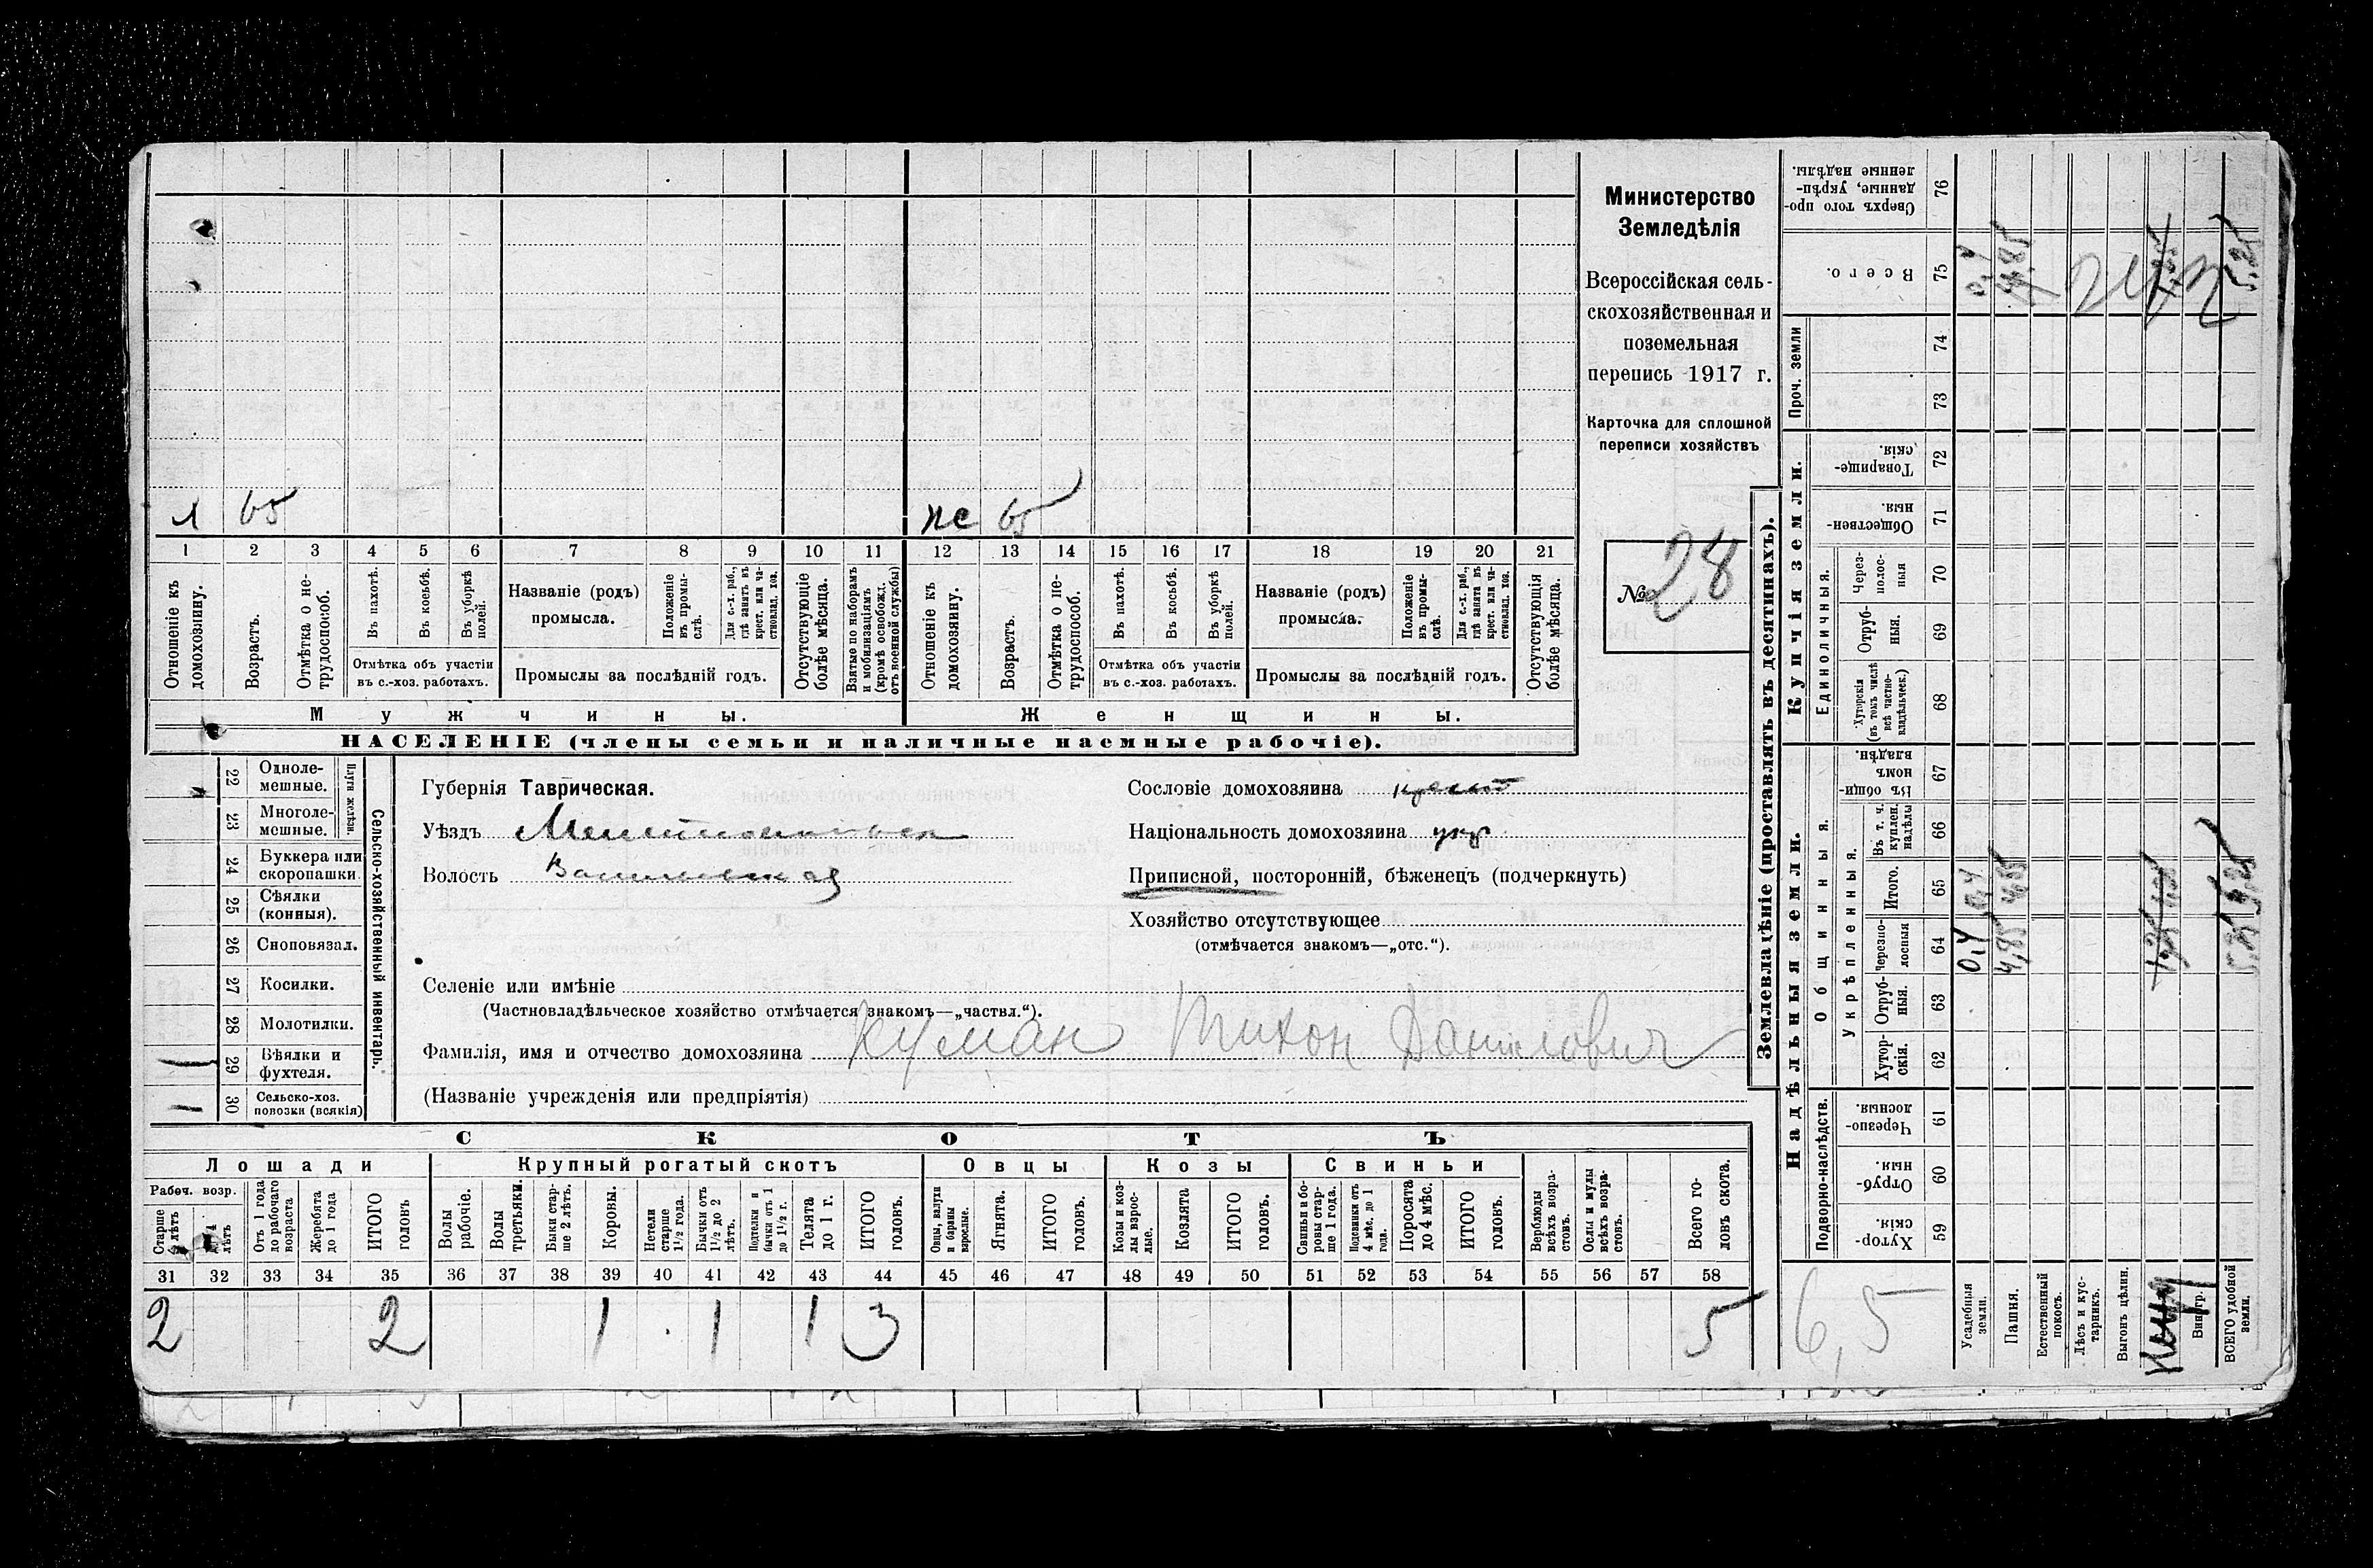 Министерство
Земледѣлія
Всероссійская сель-
скохозяйственная и
поземельная
перепись 1917 г.
Карточка для сплошной
переписи хозяйствъ
№ 28
1 65
же 65
1 2 3 4 5 6 7 8 9 10 11 12 13 14 15 16 17 18 19 20 21
Отношеніе къ домохозяину.
Возрастъ.
Отмѣтка о не-трудоспособ.
Въ пахотѣ.
Въ косьбѣ.
Въ уборкѣ полей.
Отмѣтка объ участіи
въ с.-хоз. работахъ.
Названіе (родъ)
промысла.
Положеніе въ промы-слѣ.
Для с.-х. раб., гдѣ занятъ въ крест. или ча-стновлад. хоз.
Промыслы за послѣдній годъ.
Отсутствующіе болѣе мѣсяца.
Взятые по наборамъ и мобилизаціямъ (кромѣ освобожд. отъ военной службы)
Отношеніе къ домохозяину.
Возрастъ.
Отмѣтка о не-трудоспособ.
Въ пахотѣ.
Въ косьбѣ.
Въ уборкѣ полей.
Отмѣтка объ участіи
въ с.-хоз. работахъ.
Названіе (родъ)
промысла.
Положеніе въ промы-слѣ.
Для с.-х. раб., гдѣ занята въ крест. или ча-стновлад. хоз.
Промыслы за послѣдній годъ.
Отсутствующія болѣе мѣсяца.
Мужчины.
Женщины.
НАСЕЛЕНІЕ (члены семьи и наличные наемные рабочіе).
22 Однолемешные.
23 Многолемешные.
Плуги желѣзн.
24 Буккера или скоропашки
25 Сѣялки (конныя).
26 Сноповязал.
27 Косилки.
28 Молотилки.
1 29 Вѣялки и фухтеля.
1 30 Сельско-хоз. повозки (всякія)
Сельско-хозяйственный инвентарь.
Губернія Таврическая.
Уѣздъ Мелитопольск
Волость Васильевская
Сословіе домохозяина крест
Національность домохозяина укр.
Приписной, посторонній, бѣженецъ (подчеркнуть)
Хозяйство отсутствующее
(отмѣчается знакомъ—„отс.“).
Селеніе или имѣніе
(Частновладѣльческое хозяйство отмѣчается знакомъ—„частвл.“).
Фамилія, имя и отчество домохозяина Куман Тихон Данилович
(Названіе учрежденія или предпріятія)
СКОТЪ
Лошади
Крупный рогатый скотъ
Овцы
Козы
Свиньи
Рабоч. возр.
Старше 4 лѣтъ
До 4 лѣтъ
Отъ 1 года до рабочаго возраста
Жеребята до 1 года
ИТОГО головъ
Волы рабочіе.
Волы третьяки.
Быки стар-ше 2 лѣтъ.
Коровы.
Нетели старше 1½ года.
Бычки отъ 1½ до 2 лѣтъ.
Подтелки и бычки отъ 1 до 1½ г.
Телята до 1 г.
ИТОГО головъ.
Овцы, валухи и бараны взрослые.
Ягнята.
ИТОГО головъ.
Козы и коз-лы взрос-лые.
Козлята
ИТОГО головъ.
Свиньи и бо-ровы стар-ше 1 года.
Подсвинки отъ 4 мѣс. до 1 года.
Поросята до 4 мѣс.
ИТОГО головъ.
Верблюды всѣхъ возра-стовъ.
Ослы и мулы всѣхъ возра-стовъ.
Всего го-ловъ скота.
31 32 33 34 35 36 37 38 39 40 41 42 43 44 45 46 47 48 49 50 51 52 53 54 55 56 57 58
2 2 1 1 1 3 5
Землевладѣніе (проставлять въ десятинахъ).
Надѣльныя земли.
Купчія земли.
Проч. земли
Подворно-наслѣдств.
Общинныя.
Укрѣпленныя.
Единоличныя.
Сверхъ того про-данные, укрѣп-ленные надѣлы. 76
Всего. 75
74
73
Товарище-скія. 72
Обществен-ныя. 71
Через-полос-ныя 70
Отруб-ныя. 69
Хуторскія (въ томъ числѣ всѣ частно-владѣльческ.) 68
Въ общин-номъ владѣн. 67
Въ т. ч. куплен. надѣлы 66
Итого. 65
Черезпо-лосныя 64
Отруб-ныя. 63
Хутор-скія. 62
Черезпо-лосныя. 61
Отруб-ныя. 60
Хутор-скія. 59
Усадебныя земли.
Пашня.
Естественный покосъ.
Лѣсъ и кус-тарникъ.
Выгонъ цѣлин.
Виногр.
ВСЕГО удобной земли.
0,4
4,85
0,4
4,85
0,4
4,85
5,25
5,25
6,5